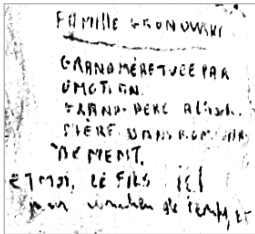 FAMILLE GRONOWSKI
GRAND MÈRE TUÉE PAR
ÉMOTION.
GRAND-PÈRE
PÈRE DANS BOMBAR
DEMENT.
ET MOI, LE FILS ICI
pour de temps, et